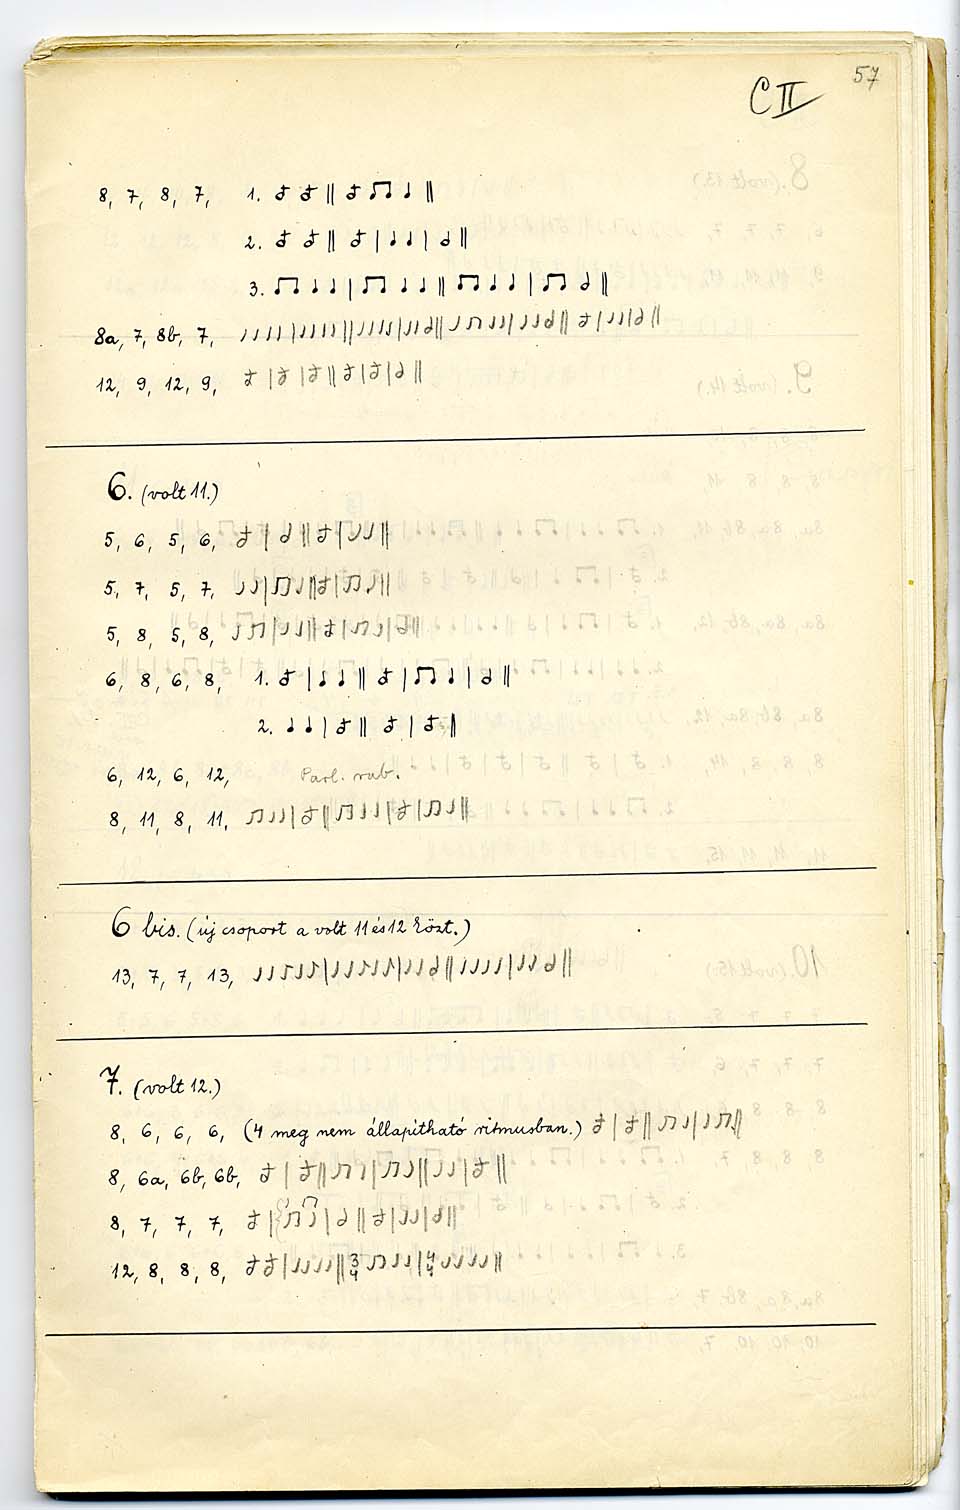 57
C II
8, 7, 8, 7, 1.
2.
3.
8a, 7, 8b, 7,
12, 9, 12, 9,
6. (volt 11.)
5, 6, 5, 6,
5, 7, 5, 7,
5, 8, 5, 8,
6, 8, 6, 8, 1.
2.
6, 12, 6, 12, Parl. rub.
8, 11, 8, 11,
6 bis. (új csoport a volt 11 és 12 közt.)
13, 7, 7, 13,
7. (volt 12.)
8, 6, 6, 6, (4 meg nem állapítható ritmusban.)
8, 6a, 6b, 6b,
8, 7, 7, 7,
12, 8, 8, 8, 3/4 4/4